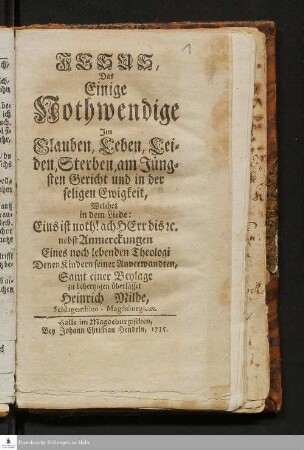 1
JESUS,
Das
Einige
Nothwendige
Im
Glauben, Leben, Lei-
den, Sterben, am Jüng-
sten Gericht und in der
seligen Ewigkeit,
Welches
in dem Liede:
Eins ist noth! ach HErr dis ꝛc.
nebst Anmerckungen
Eines noch lebenden Theologi
Denen Kindern seiner Anverwandten,
Samt einer Beylage
zu behertzigen überlasset
Heinrich Milde,
Halle im Magdeburgischen,
Bey Johann Christian Hendeln, 1735.
Franckesche Stiftungen zu Halle